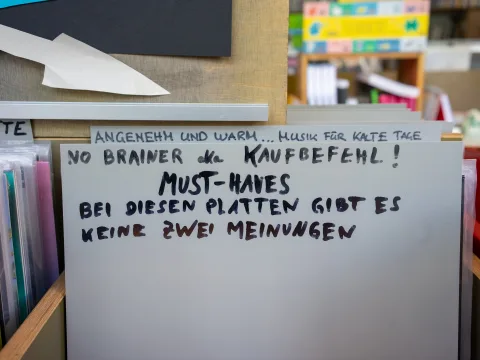 TE
ANGENEHM UND WARM... MUSIK FÜR KALTE TAGE
NO BRAINER aka KAUFBEFEHL!
MUST-HAVES
BEI DIESEN PLATTEN GIBT ES
KEINE ZWEI MEINUNGEN